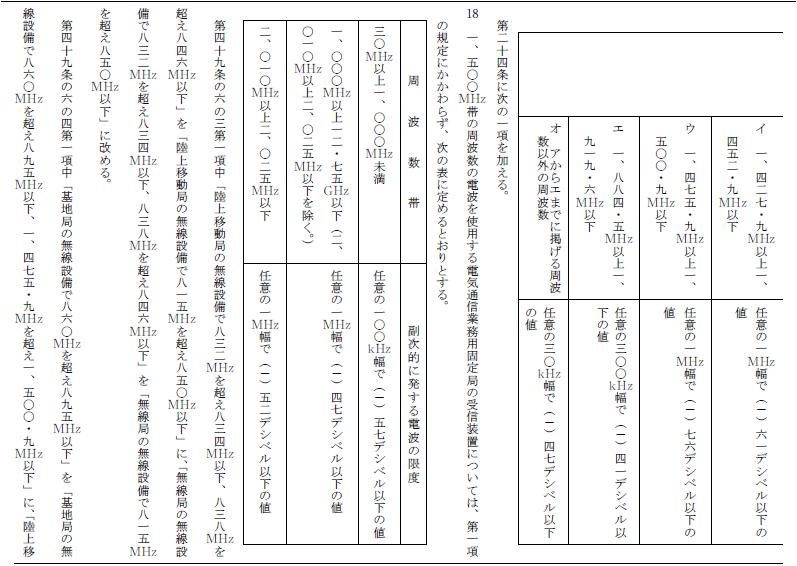 イ　一、四二七・九MHz以上一、
四五二・九MHz以下
任意の一MHz幅で（－）六一デシベル以下の
値
ウ　一、四七五・九MHz以上一、
五〇〇・九MHz以下
任意の一MHz幅で（－）七六デシベル以下の
値
エ　一、八八四・五MHz以上一、
九一九・六MHz以下
任意の三〇〇kHz幅で（－）四一デシベル以
下の値
オ　アからエまでに掲げる周波
数以外の周波数
任意の三〇kHz幅で（－）四七デシベル以下
の値
第二十四条に次の一項を加える。
18　一、五〇〇MHz帯の周波数の電波を使用する電気通信業務用固定局の受信装置については、第一項
の規定にかかわらず、次の表に定めるとおりとする。
周波数帯
副次的に発する電波の限度
三〇MHz以上一、〇〇〇MHz未満
任意の一〇〇kHz幅で（－）五七デシベル以下の値
一、〇〇〇MHz以上一二・七五GHz以下（二、
〇一〇MHz以上二、〇二五MHz以下を除く。）
任意の一MHz幅で（－）四七デシベル以下の値
二、〇一〇MHz以上二、〇二五MHz以下
任意の一MHz幅で（－）五二デシベル以下の値
第四十九条の六の三第一項中「陸上移動局の無線設備で八三二MHzを超え八三四MHz以下、八三八MHzを
超え八四六MHz以下」を「陸上移動局の無線設備で八一五MHzを超え八五〇MHz以下」に、「無線局の無線設
備で八三二MHzを超え八三四MHz以下、八三八MHzを超え八四六MHz以下」を「無線局の無線設備で八一五MHz
を超え八五〇MHz以下」に改める。
第四十九条の六の四第一項中「基地局の無線設備で八六〇MHzを超え八九五MHz以下」を「基地局の無
線設備で八六〇MHzを超え八九五MHz以下、一、四七五・九MHzを超え一、五〇〇・九MHz以下」に、「陸上移